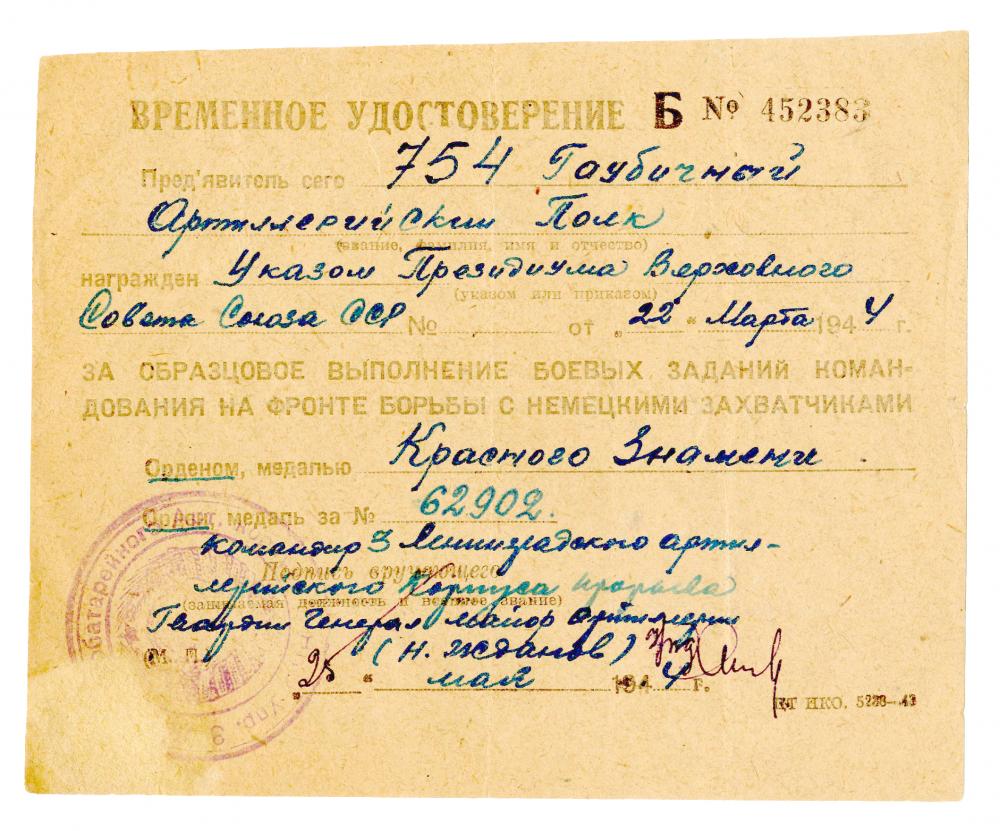 ВРЕМЕННОЕ УДОСТОВЕРЕНИЕ Б № 452383
Пред'явитель сего 754 Гаубичный
Артиллерийский Полк
(звание, фамилия, имя и отчество)
награжден Указом Президиума Верховного
(указом или приказом)
Совета Союза ССР № от „22" Марта 1944 г.
ЗА ОБРАЗЦОВОЕ ВЫПОЛНЕНИЕ БОЕВЫХ ЗАДАНИЙ КОМАН-
ДОВАНИЯ НА ФРОНТЕ БОРЬБЫ С НЕМЕЦКИМИ ЗАХВАТЧИКАМИ
Орденом, медалью Красного Знамени
Орден, медаль за № 62902.
Командир 3 Ленинградского артил-
Подпись вручающего
лерийского Корпуса прорыва
(занимаемая должность и военное звание)
Гвардии Генерал майор артиллерии
(М. П. (Н. Жданов)
„25" мая 1944 г.